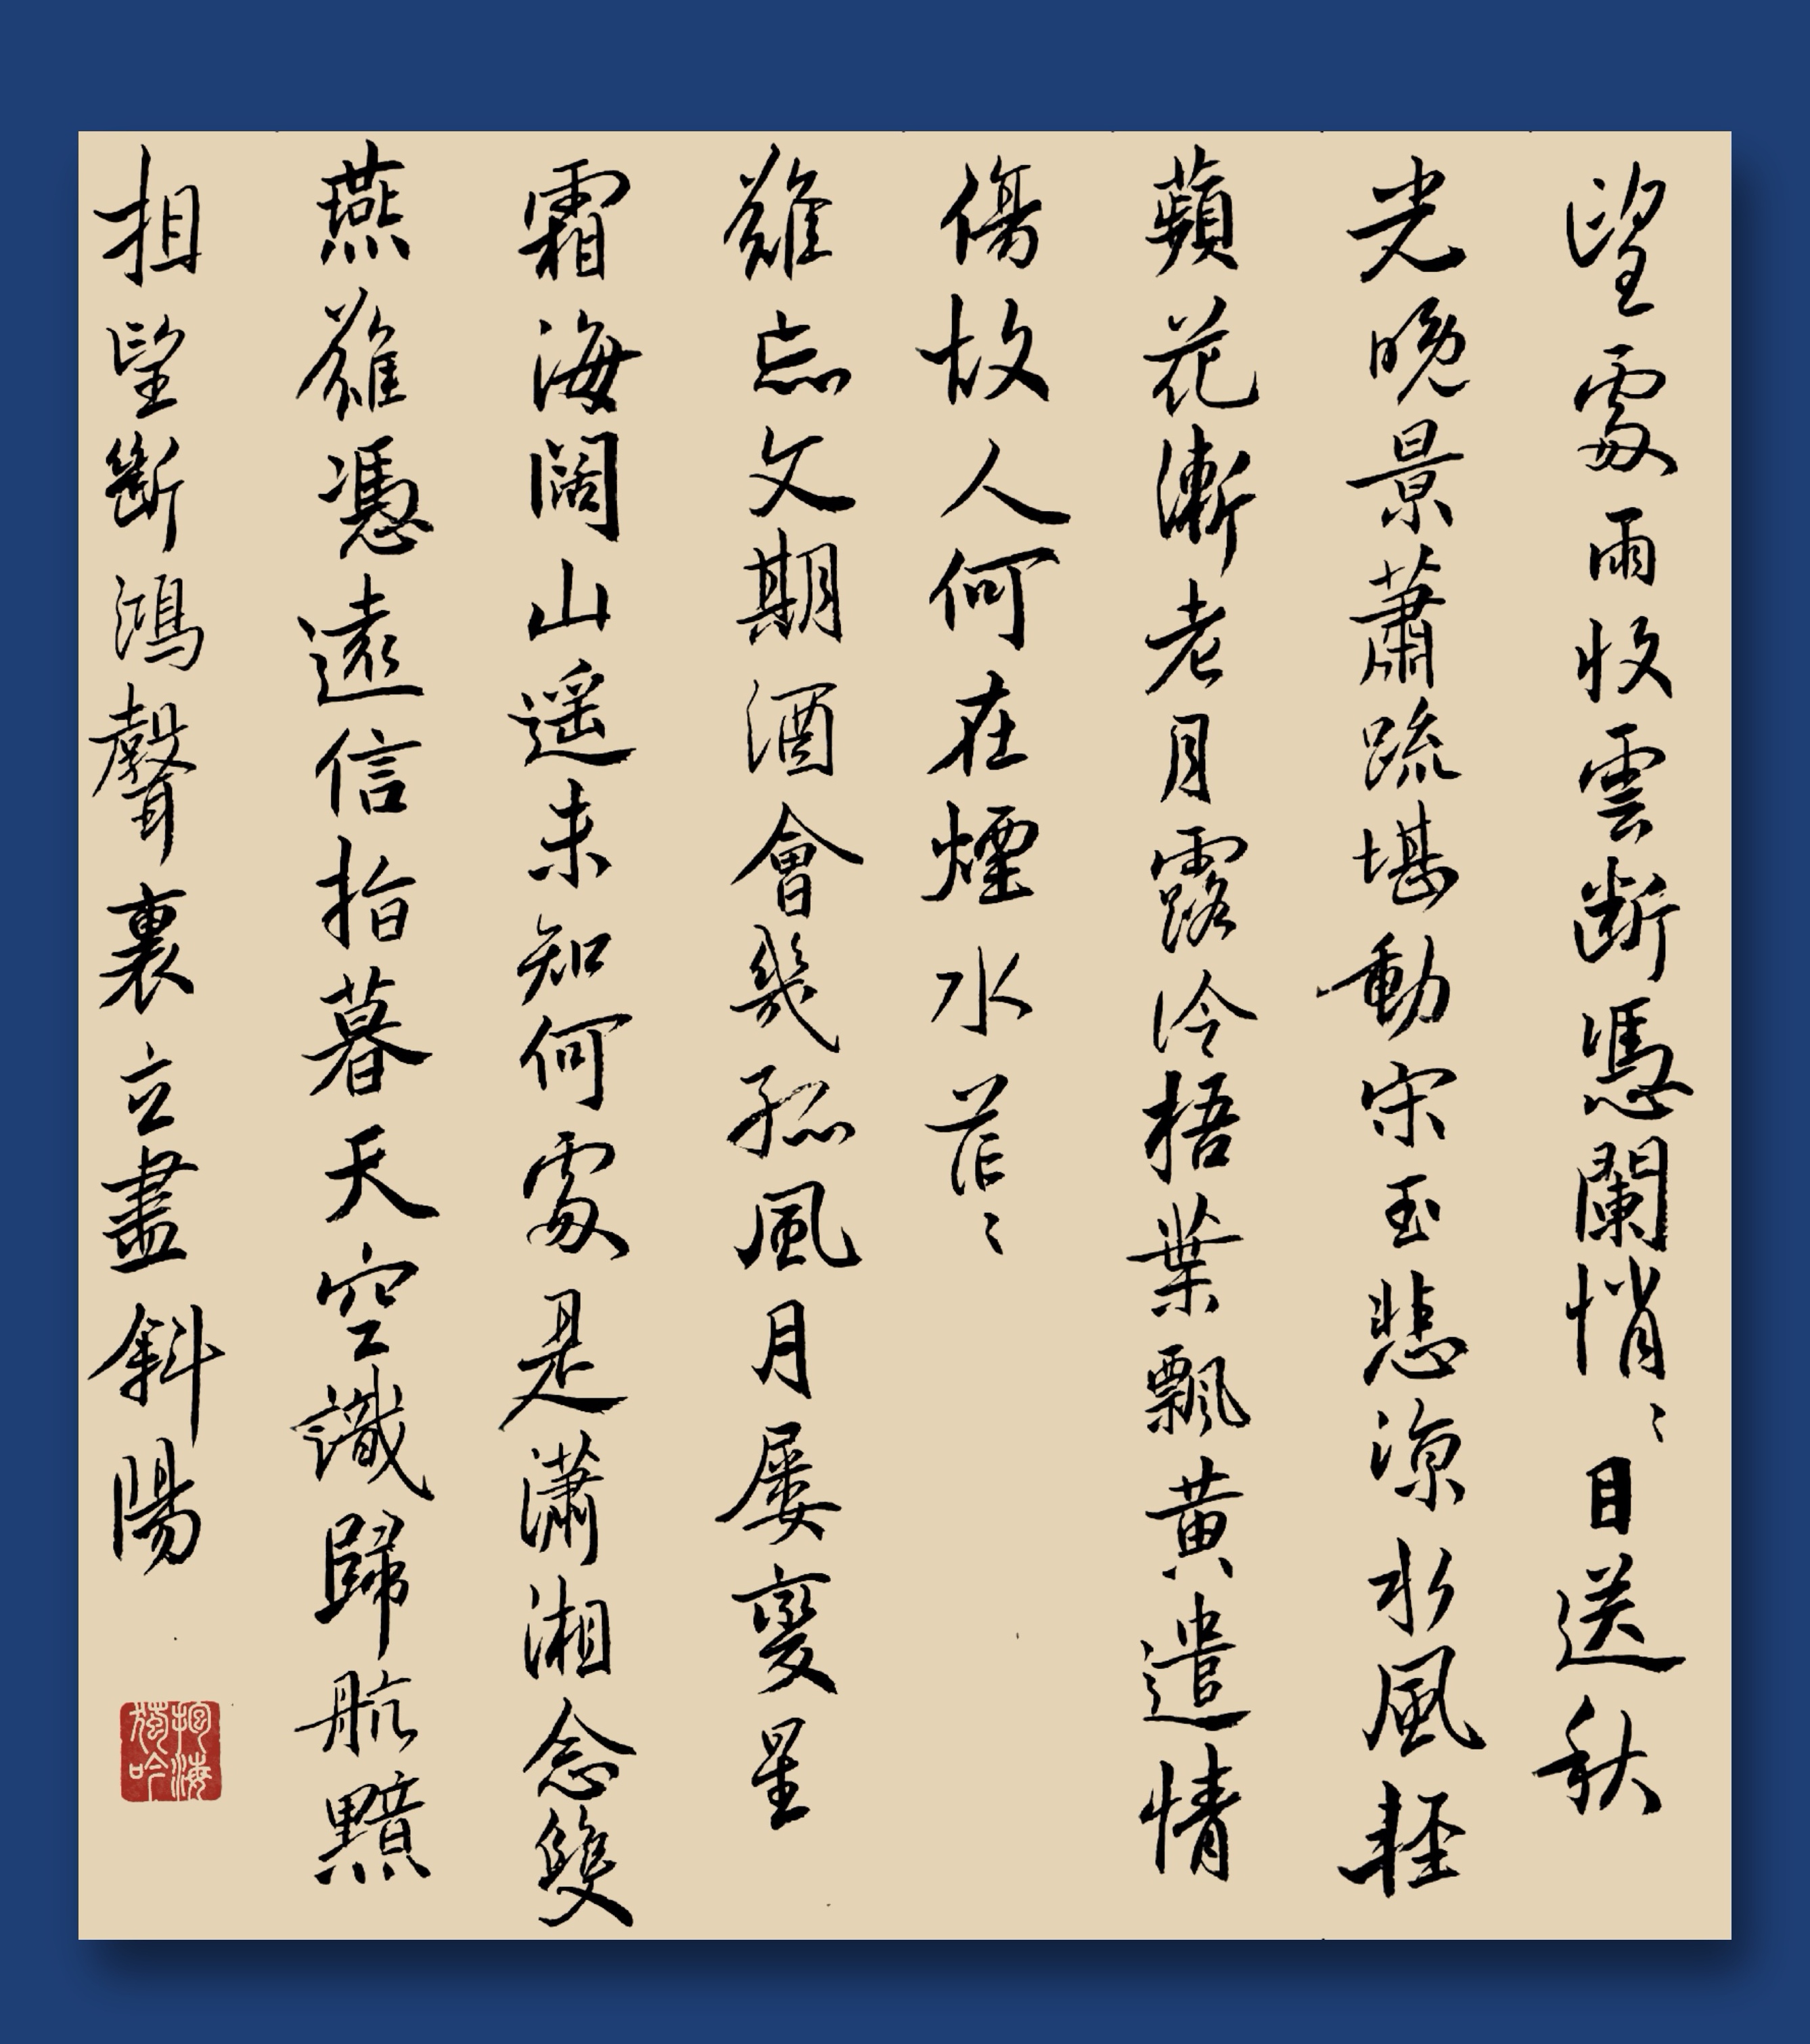 望處雨收雲断憑闌悄〻目送秋
光晚景蕭疏堪動宋玉悲涼水風軽
蘋花漸老月露冷梧葉飄黄遣情
傷故人何在煙水茫〻
難忘文期酒會幾孤風月屡變星
霜海闊山遥未知何處是瀟湘念雙
燕難憑遠信指暮天空識歸航黯
相望斷鴻聲裏立盡斜陽